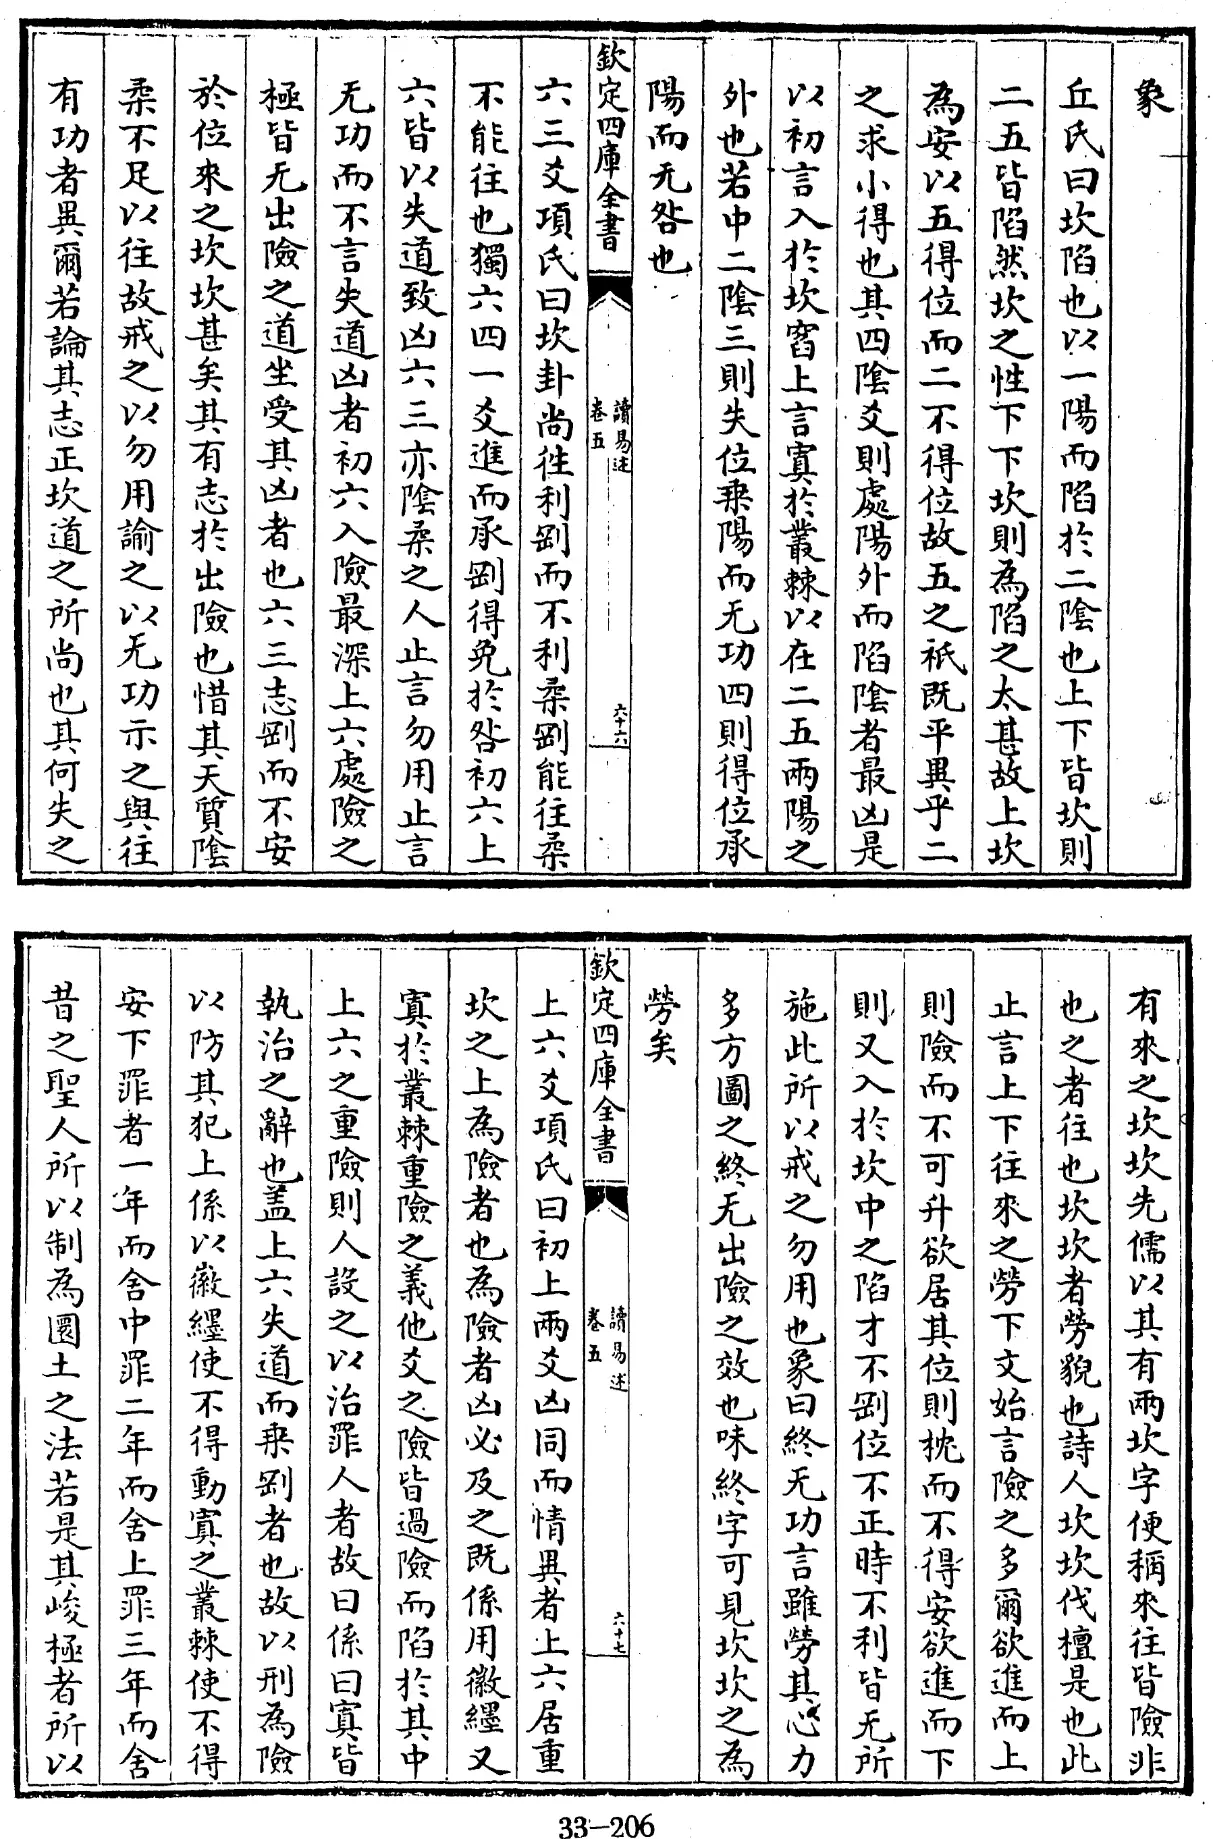 象
丘氏曰坎陷也以一陽而陷於二陰也上下皆坎則
二五皆陷然坎之性下下坎則為陷之太甚故上坎
為安以五得位而二不得位故五之祇既平異乎二
之求小得也其四陰爻則處陽外而陷陰者最凶是
以初言入於坎窞上言寘於叢棘以在二五兩陽之
外也若中二陰三則失位乗陽而无功四則得位承
陽而无咎也
欽定四庫全書
讀易述
卷五
六十六
六三爻項氏曰坎卦尚往利剛而不利柔剛能往柔
不能往也獨六四一爻進而承剛得免於咎初六上
六皆以失道致凶六三亦陰柔之人止言勿用止言
无功而不言失道凶者初六入險最深上六處險之
極皆无出險之道坐受其凶者也六三志剛而不安
於位來之坎坎甚矣其有志於出險也惜其天質陰
柔不足以往故戒之以勿用諭之以无功示之與往
有功者異爾若論其志正坎道之所尚也其何失之
有來之坎坎先儒以其有兩坎字便稱來往皆險非
也之者往也坎坎者勞貌也詩人坎坎伐檀是也此
止言上下往來之勞下文始言險之多爾欲進而上
則險而不可升欲居其位則枕而不得安欲進而下
則又入於坎中之陷才不剛位不正時不利皆无所
施此所以戒之勿用也象曰終无功言雖勞其心力
多方圖之終无出險之效也味終字可見坎坎之為
勞矣
欽定四庫全書
讀易述
卷五
六十七
上六爻項氏曰初上兩爻凶同而情異者上六居重
坎之上為險者也為險者凶必及之既係用徽纆又
寘於叢棘重險之義他爻之險皆過險而陷於其中
上六之重險則人設之以治罪人者故曰係曰寘皆
執治之辭也盖上六失道而乗剛者也故以刑為險
以防其犯上係以徽纆使不得動寘之叢棘使不得
安下罪者一年而舍中罪二年而舍上罪三年而舍
昔之聖人所以制為圜土之法若是其峻極者所以
33-206